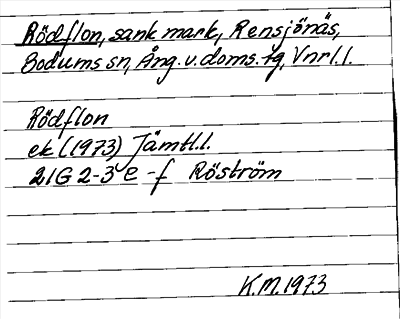 Rödflon, sank mark, Rensjönäs,
Bodums sn, Ång. v. doms. tg, Vnrl. l.
Rödflon
ek (1973) Jämtl. l.
21G 2-3 e -f Röström
K.M. 1973